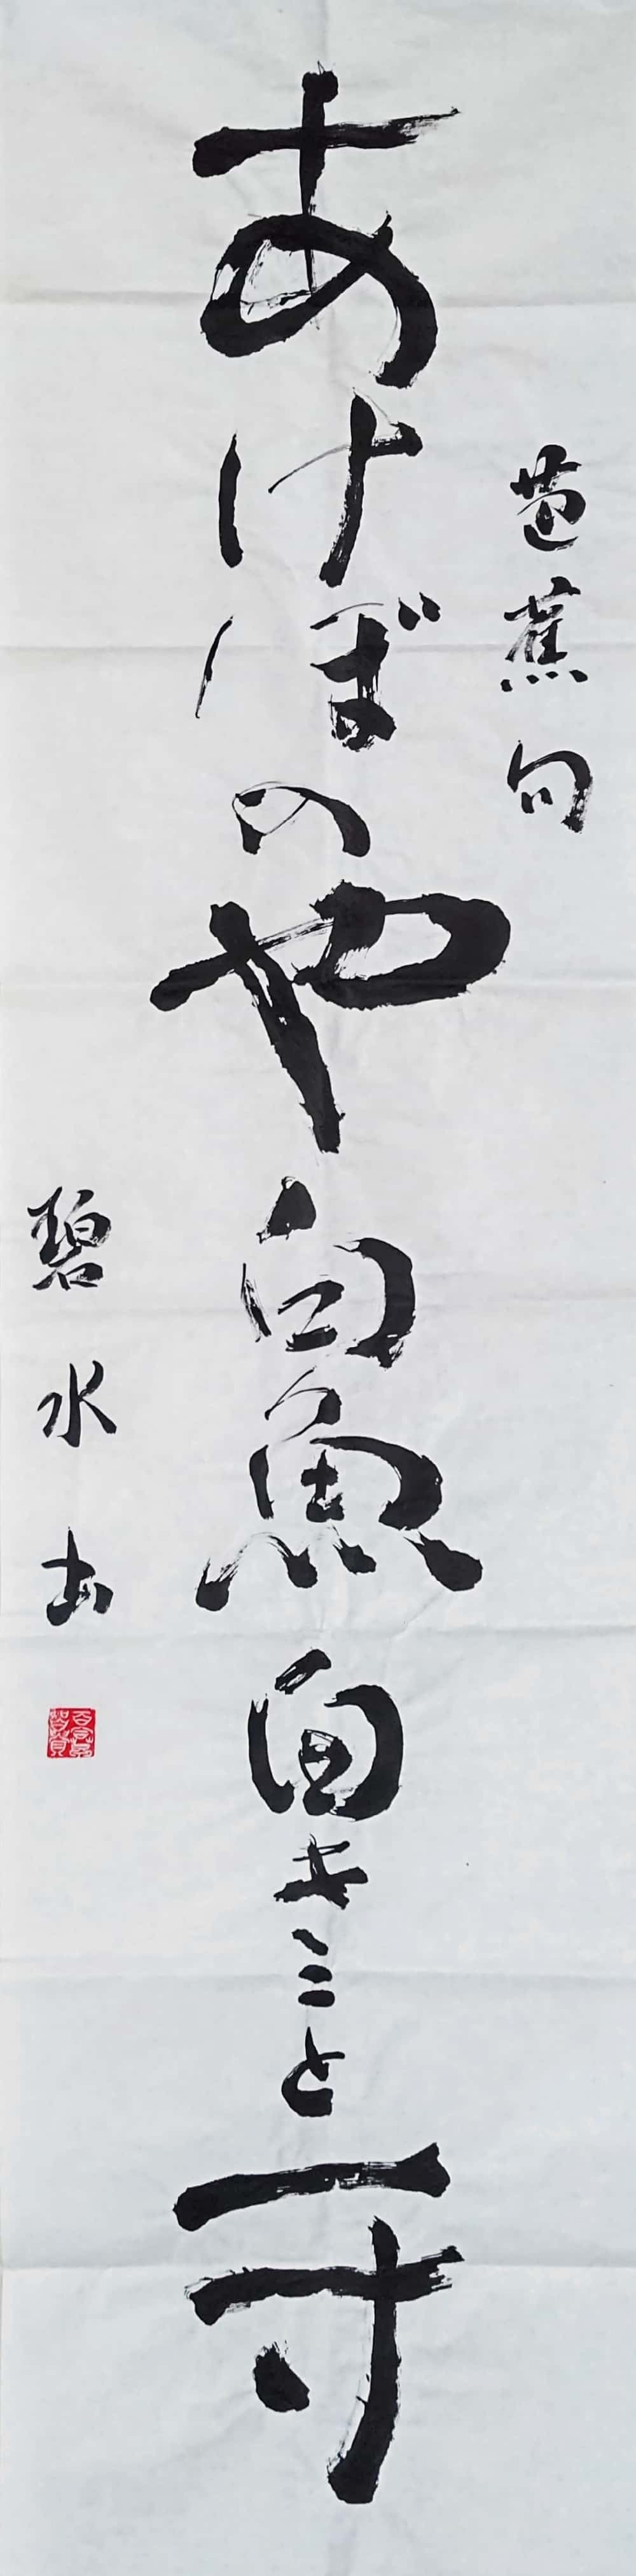 芭蕉句
あけぼのや白魚白きこと一寸
碧水出